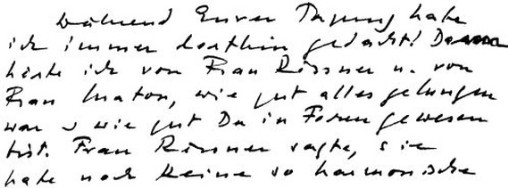 Während Eurer Tagung habe
ich immer dorthin gedacht! Dann
hörte ich von Frau Rössner u. von
Frau Maton, wie gut alles gelungen
war u wie gut Du in Form gewesen
bist. Frau Rössner sagte, sie
habe noch keine so harmonische